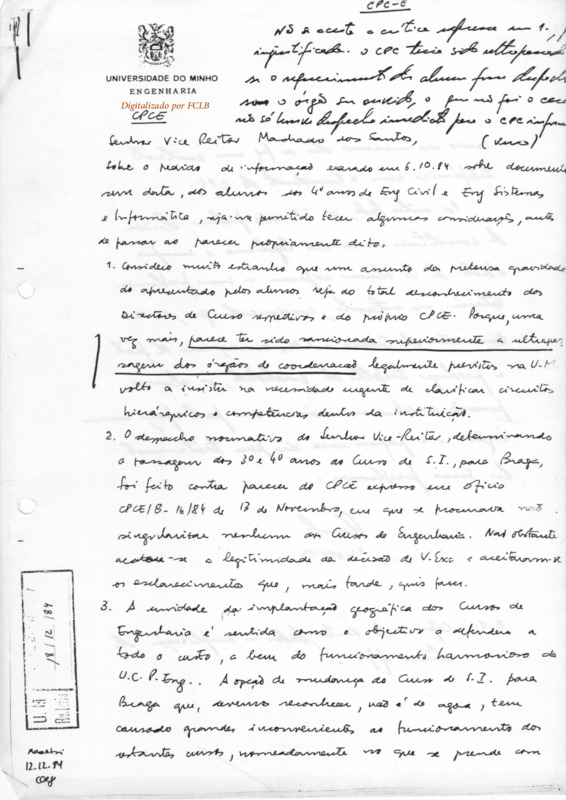 CPC-E
Não se aceita a crítica expressa em 1.,
injustificada. O CPC teria sido ultrapassado
se o requerimento dos alunos fosse despachado
sem o órgão ser ouvido, o que não foi o caso
UNIVERSIDADE DO MINHO
ENGENHARIA
Digitalizado por FCLB
CPCE
Senhor Vice Reitor Machado dos Santos,
Sobre o pedido de informação exarado em 6.10.84 sobre documento
sem data, dos alunos dos 4º anos de Eng Civil e Eng Sistemas
e Informática, seja-me permitido tecer algumas considerações, antes
de passar ao parecer propriamente dito.
1. Considero muito estranho que um assunto da pretensa gravidade
do apresentado pelos alunos seja do total desconhecimento dos
Directores de Curso respectivos e do próprio CPCE. Porque, uma
vez mais, parece ter sido sancionada superiormente a ultrapas-
sagem dos órgãos de coordenação legalmente previstos na U.M.
volto a insistir na necessidade urgente de clarificar circuitos
hierárquicos e competências dentro da instituição.
2. O despacho normativo do Senhor Vice-Reitor, determinando
a passagem dos 3º e 4º anos do Curso de S.I., para Braga,
foi feito contra parecer do CPCE expresso em ofício
CPCE/B-16/84 de 13 de Novembro, em que se procurava não
singularizar nenhum dos Cursos de Engenharia. Não obstante
acatou-se a legitimidade da decisão de V. Exa e aceitaram-se
os esclarecimentos que, mais tarde, quis fazer.
3. A unidade da implantação geográfica dos Cursos de
Engenharia é sentida como o objectivo a defender a
todo o custo, a bem do funcionamento harmonioso da
U.C.P. Eng.. A opção de mudança do Curso de S.I. para
Braga que, devemos reconhecer, não é de agora, tem
causado grandes inconvenientes ao funcionamento dos
restantes cursos, nomeadamente no que se prende com
18/12/84
12.12.84